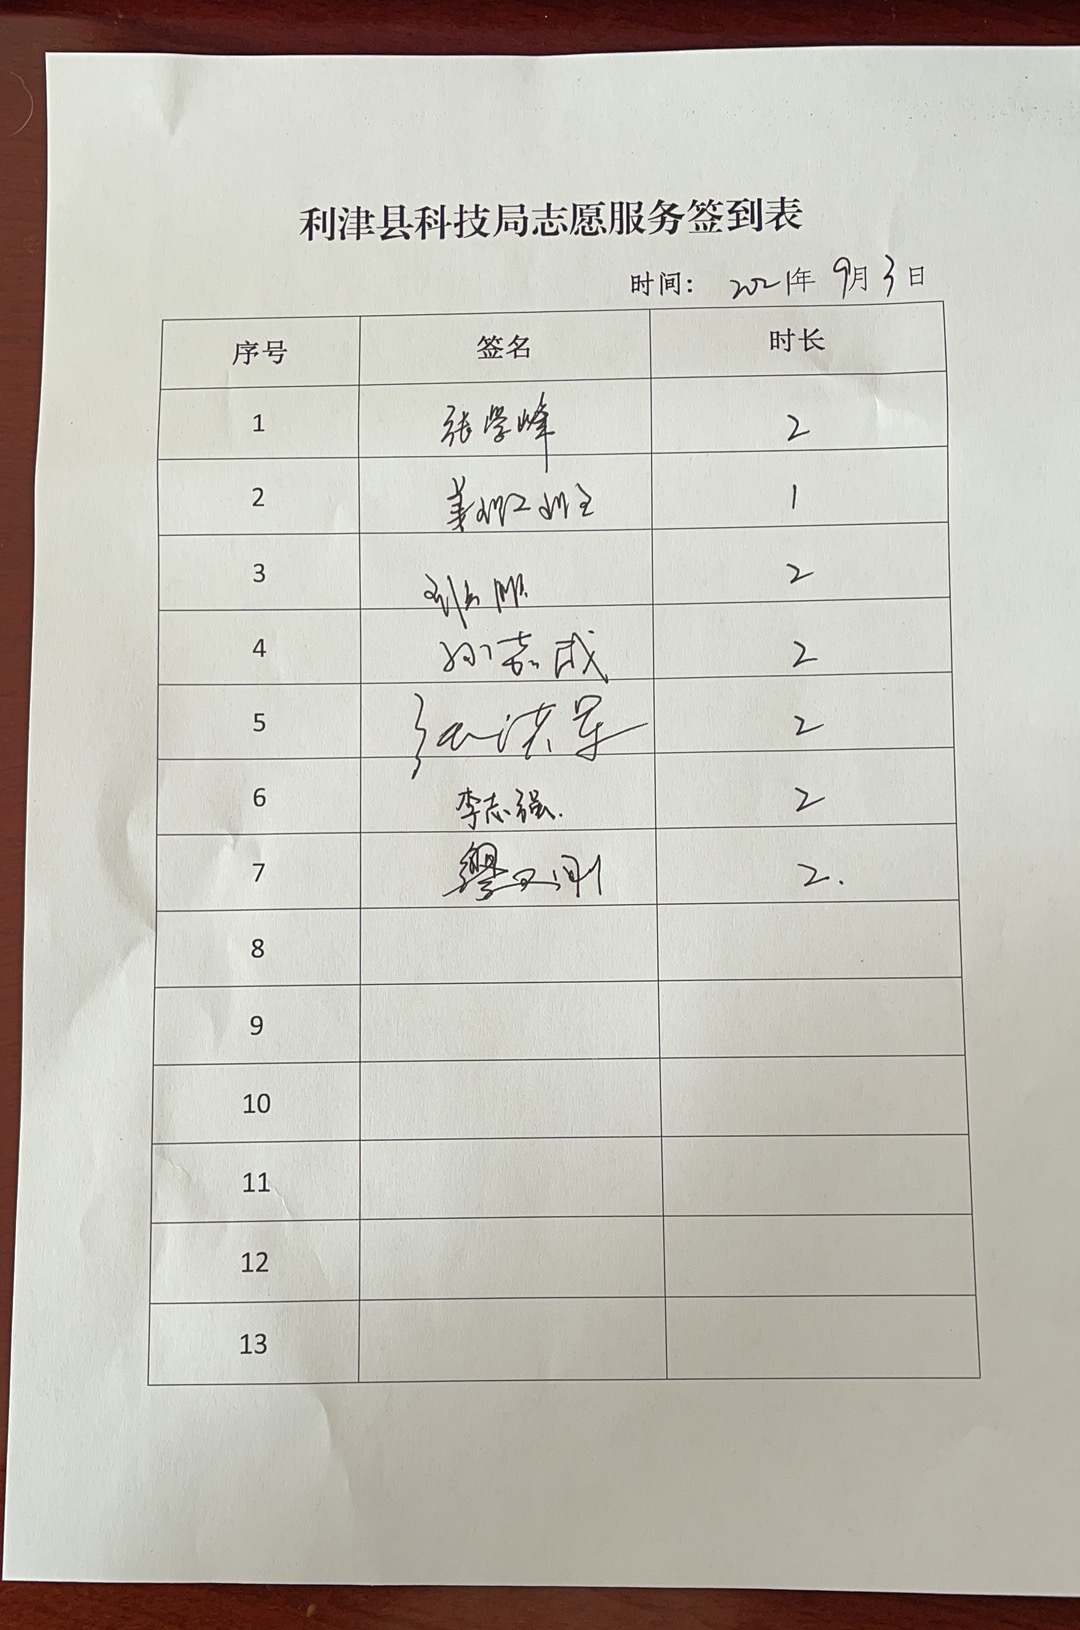 利津县科技局志愿服务签到表
时间： 2021年 9月3日
序号 签名 时长
1 张学峰 2
2 姜 1
3 2
4 孙志成 2
5 张洪军 2
6 李志强. 2
7 缪又刚 2.
8
9
10
11
12
13